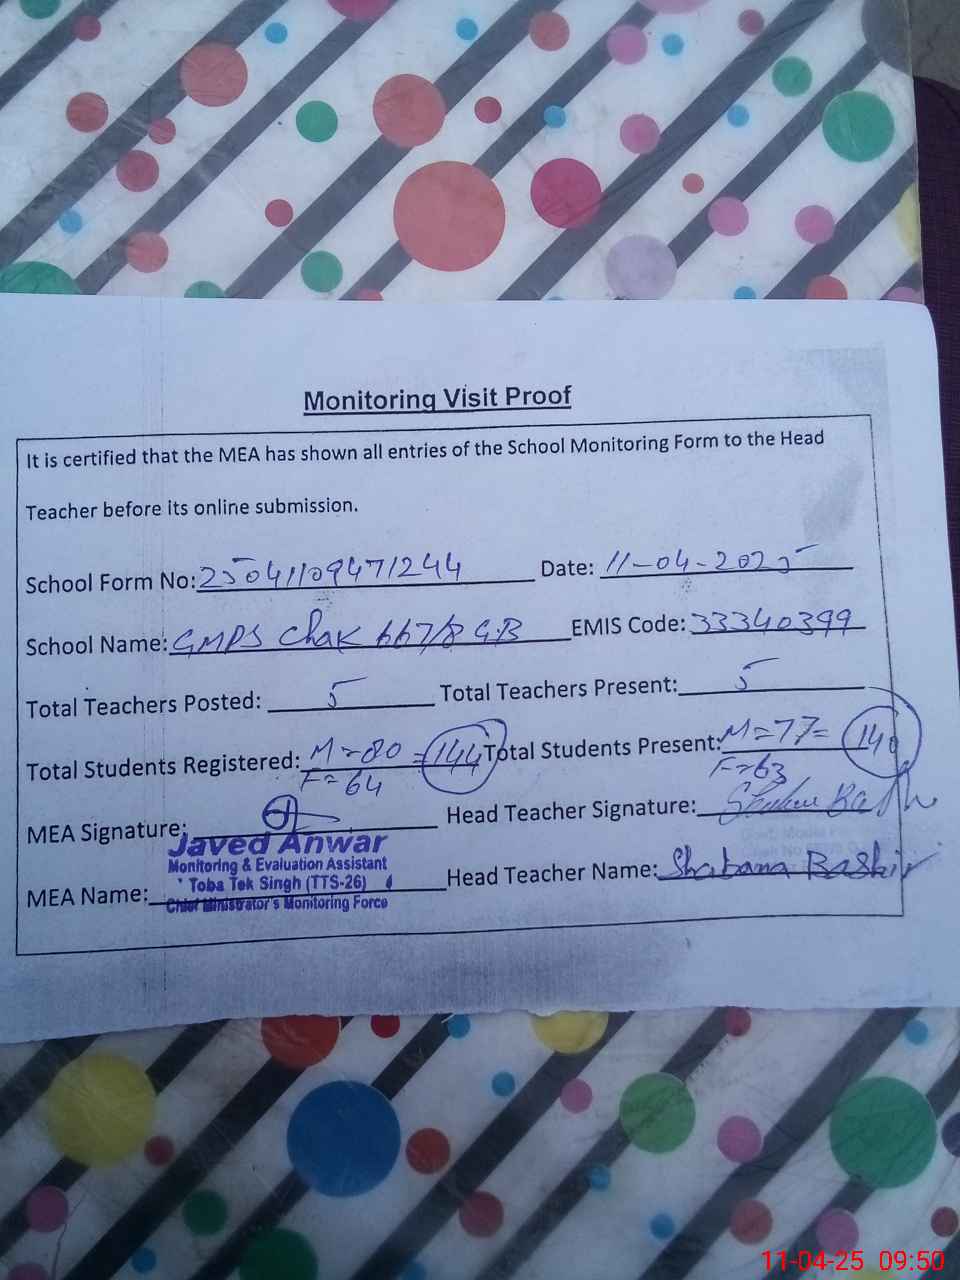 Monitoring Visit Proof
It is certified that the MEA has shown all entries of the School Monitoring Form to the Head
Teacher before its online submission.
School Form No: 25041109471244 Date: 11-04-2025
School Name: GMPS Chak 667/8 GB EMIS Code: 33340399
Total Teachers Posted: 5 Total Teachers Present: 5
Total Students Registered: M=80 = 144 Total Students Present: M=77= 140
F=64 F=63
MEA Signature: Head Teacher Signature:
Javed Anwar
Monitoring & Evaluation Assistant
Toba Tek Singh (TTS-26)
Chief Ministrator's Monitoring Force
MEA Name: Head Teacher Name: Shabana Bashir
11-04-25 09:50